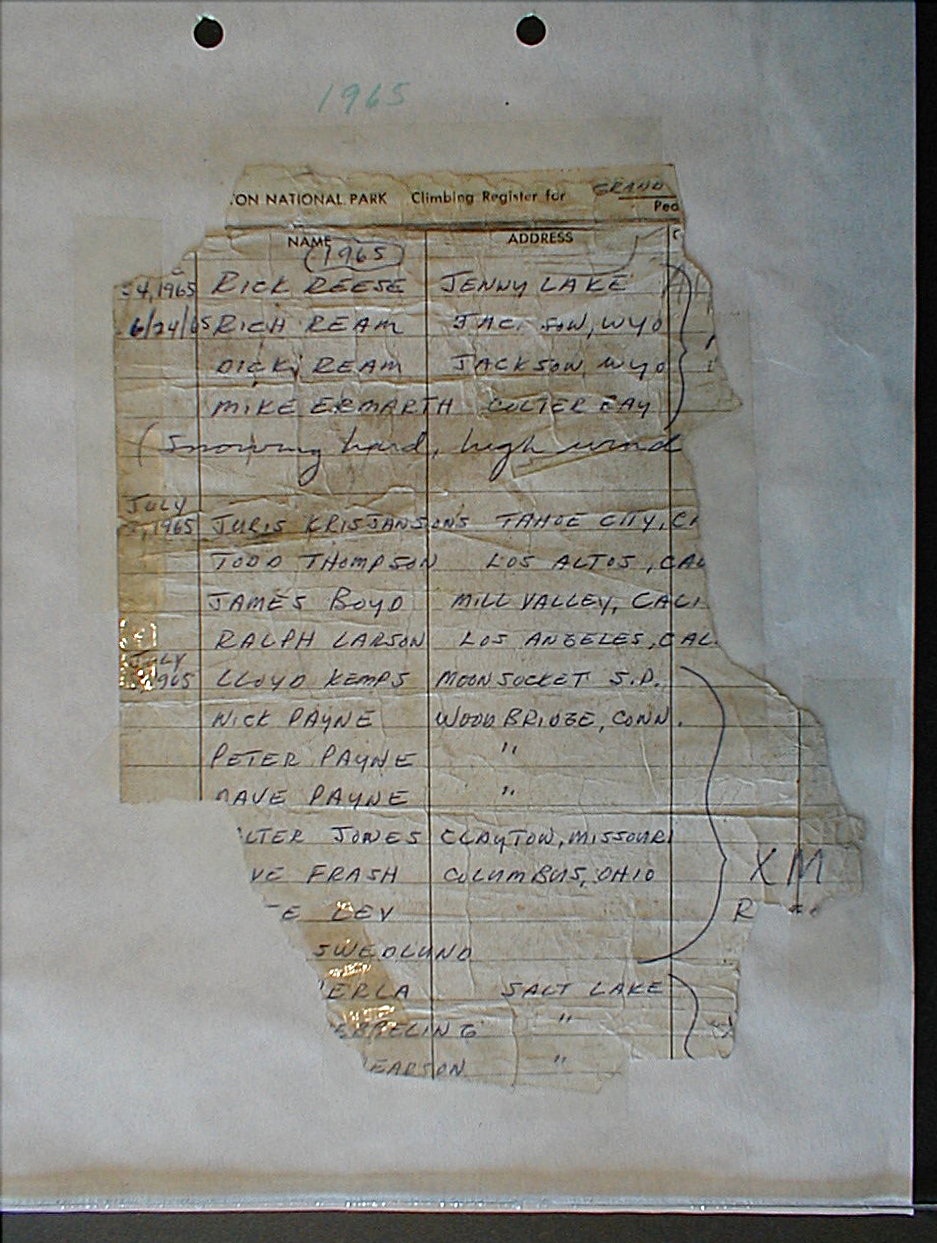 1965
ON NATIONAL PARK Climbing Register for GRAND
Pea
NAME ADDRESS
1965
4, 1965 RICK REESE JENNY LAKE
6/24/65 RICH REAM JAC SON, WYO
DICK REAM JACKSON, WYO
MIKE ERMARTH COLTER BAY
(Snowing hard, high wind
JULY
, 1965 JURIS KRISJANSONS TAHOE CITY, CA
TODD THOMPSON LOS ALTOS, CAL
JAMES BOYD MILL VALLEY, CALI
RALPH LARSON LOS ANGELES, CAL
JULY
1965 LLOYD KEMPS MOONSOCKET S.D.
NICK PAYNE WOODBRIDGE, CONN.
PETER PAYNE "
DAVE PAYNE "
LTER JONES CLAYTON, MISSOURI
VE FRASH COLUMBUS, OHIO
XM
E LEV R
SWEDLUND
ERLA SALT LAKE
PELING "
EARSON "